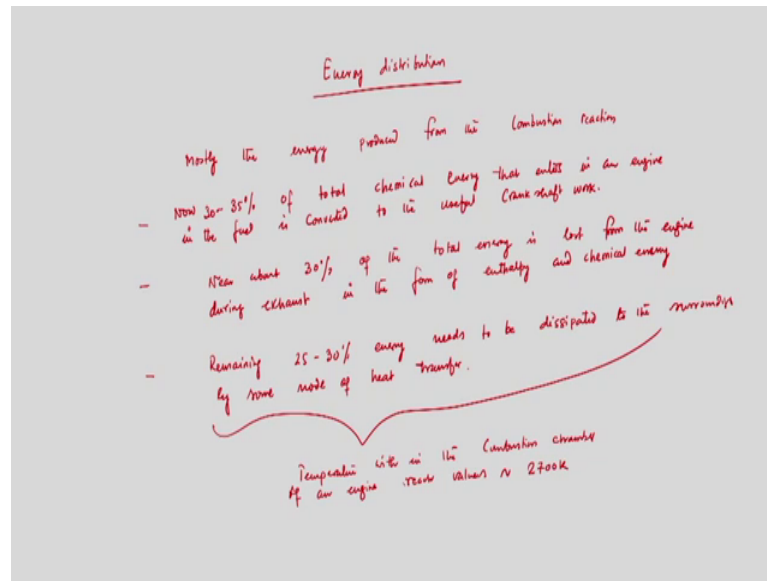 Energy distribution
Mostly the energy produced from the Combustion reaction
- Now 30-35% of total chemical Energy that enters in an engine
in the fuel is Converted to the useful Crankshaft work.
- Near about 30% of the total energy is lost from the engine
during exhaust in the form of enthalpy and chemical energy
- Remaining 25-30% energy needs to be dissipated to the surroundings
by some mode of heat transfer.
Temperature with in the Combustion chamber
of an engine reach values ~ 2700K